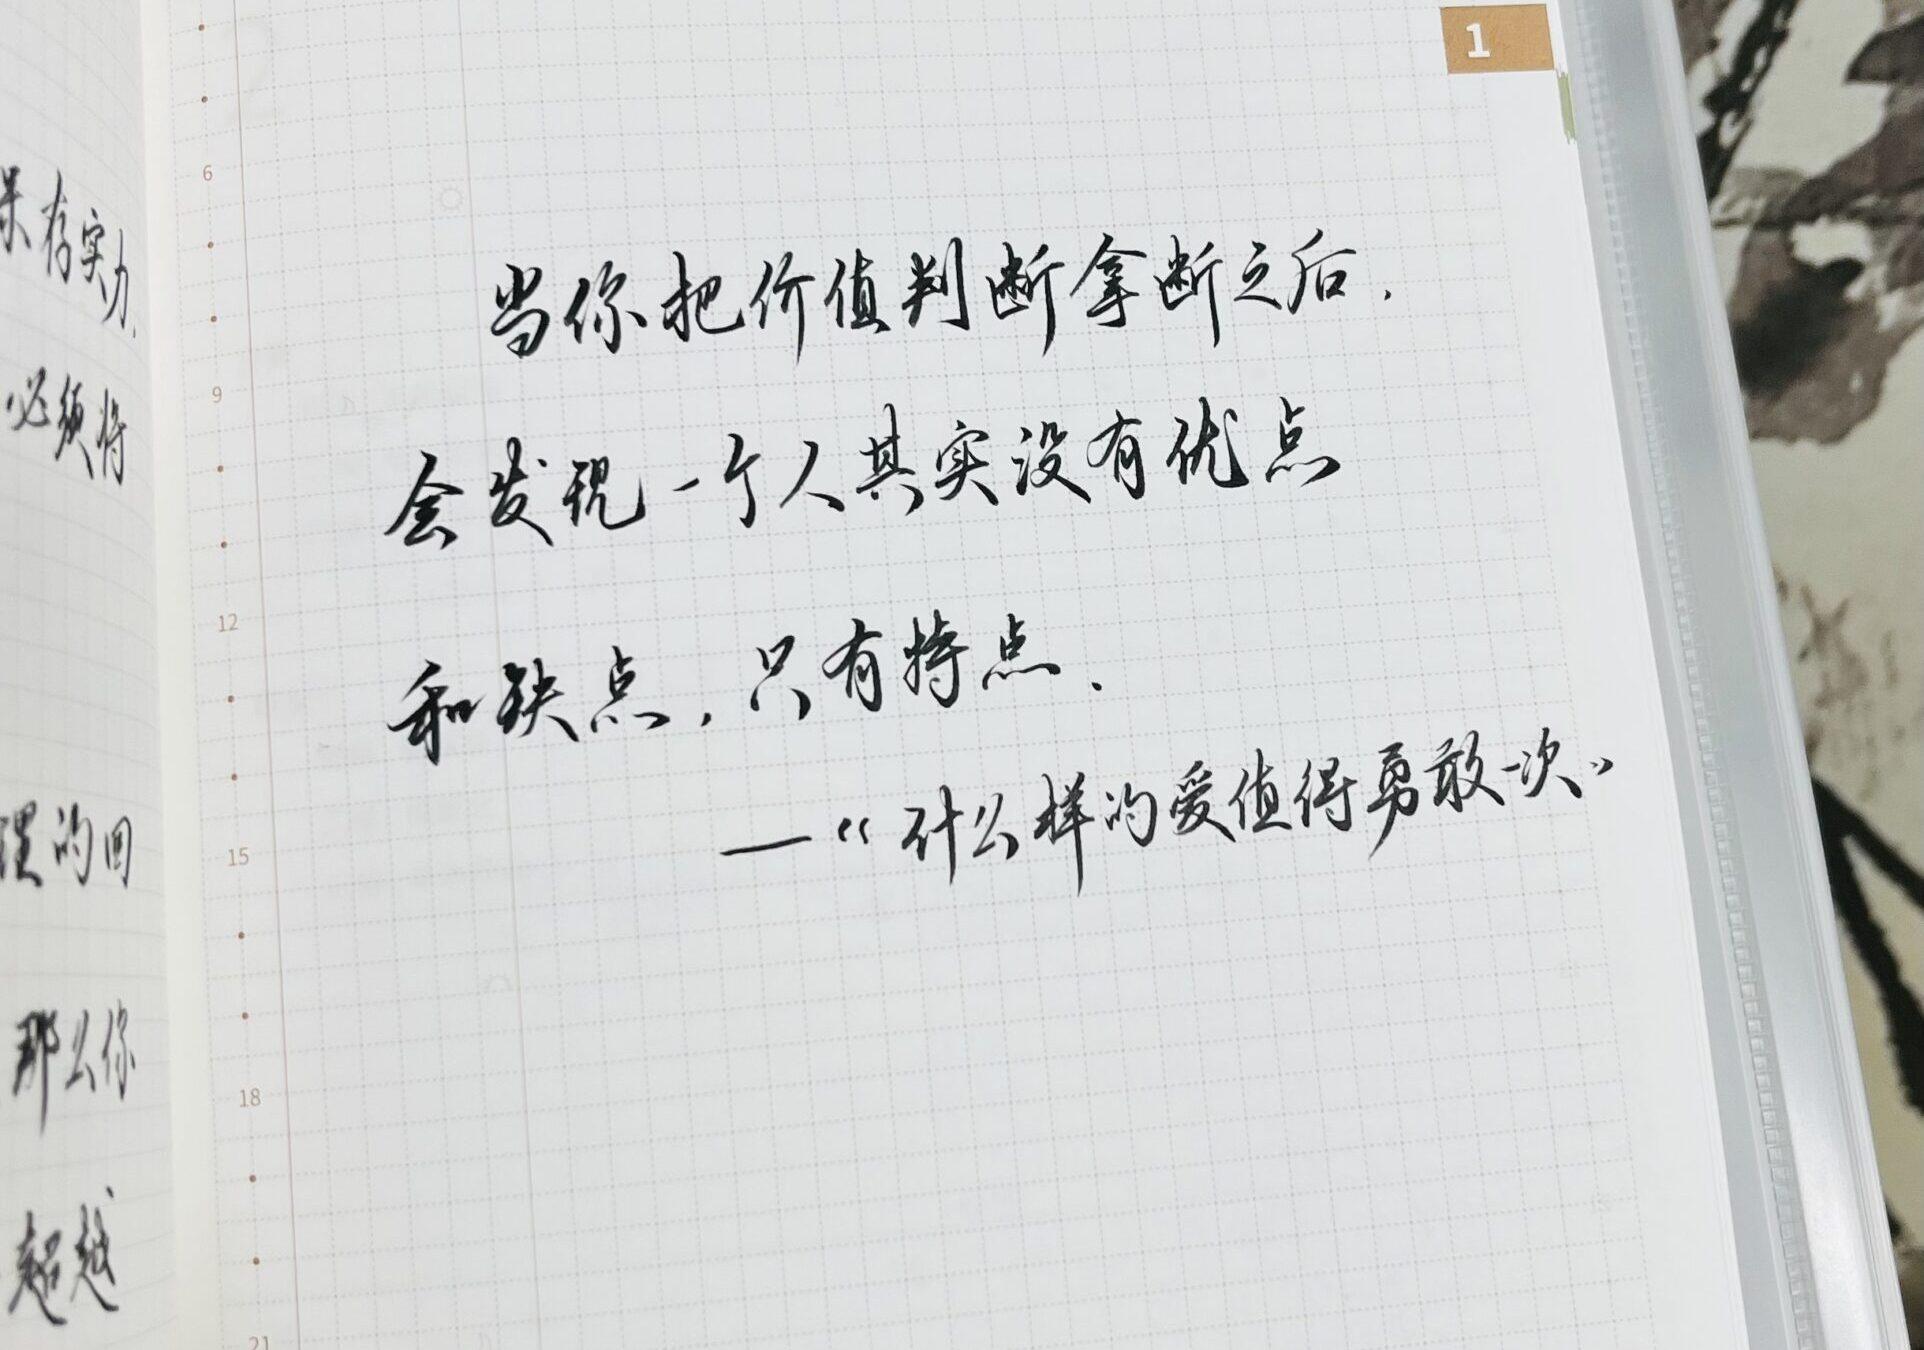 1
保存实力,
必须将
理的回
那么你
超越
6
9
12
15
18
21
当你把价值判断拿断之后,
会发现一个人其实没有优点
和缺点,只有特点.
—《什么样的爱值得勇敢一次》